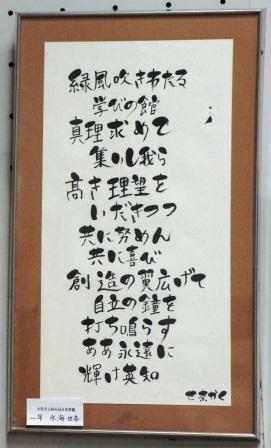 緑風吹きわたる
学びの館
真理求めて
集いし我ら
高き理望を
いだきつつ
共に努めん
共に喜び
創造の翼広げて
自立の鐘を
打ち鳴らす
ああ永遠に
輝け英知
世奈かく
一年 氷海世奈